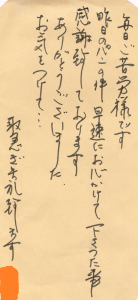 毎日ご苦労様です
昨日のパンの件早速にお心がけて下さった事
感謝致しております
ありがとうございました
お気をつけて…
取急ぎお礼 致します